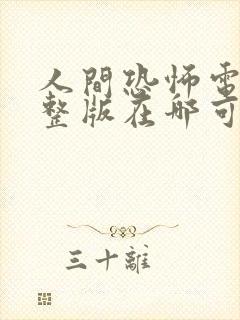 人間恐怖電
整版在哪可
三十離